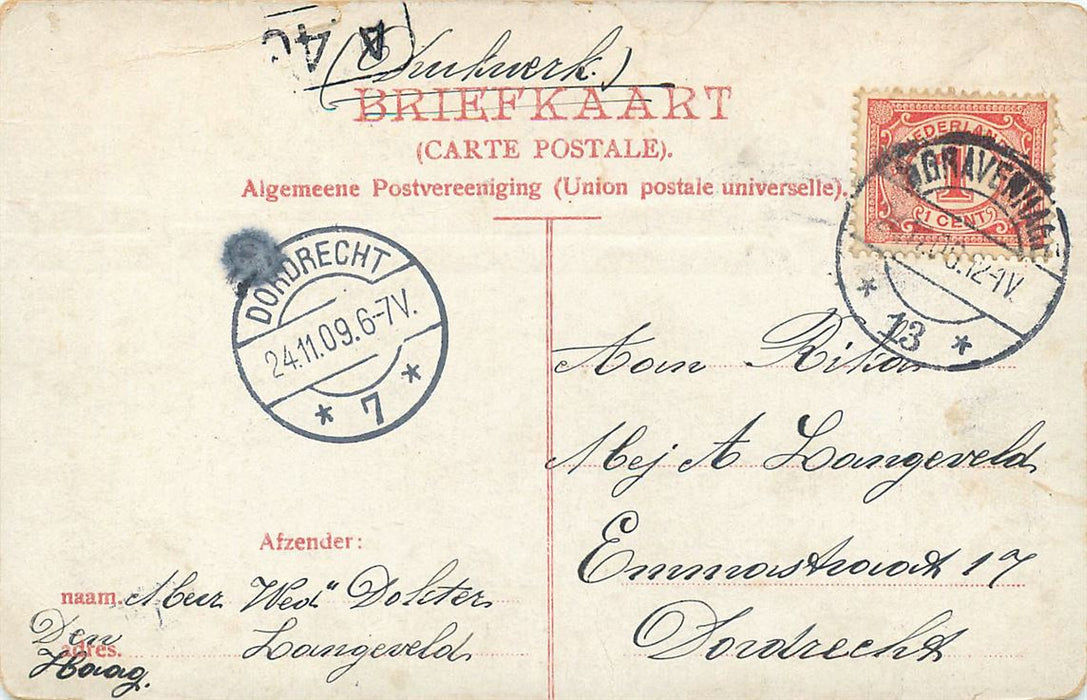 A
40
(Drukwerk.)
BRIEFKAART
(CARTE POSTALE).
Algemeene Postvereeniging (Union postale universelle).
NEDERLAND
1
1 CENT
12-1V.
13
DORDRECHT
24.11.09.6-7V.
7
Aan Rika
Mej A Langeveld
Emmastraat 17
Dordrecht
Afzender:
naam. Mevr Wed" Dokter
adres. Langeveld
Den
Haag.